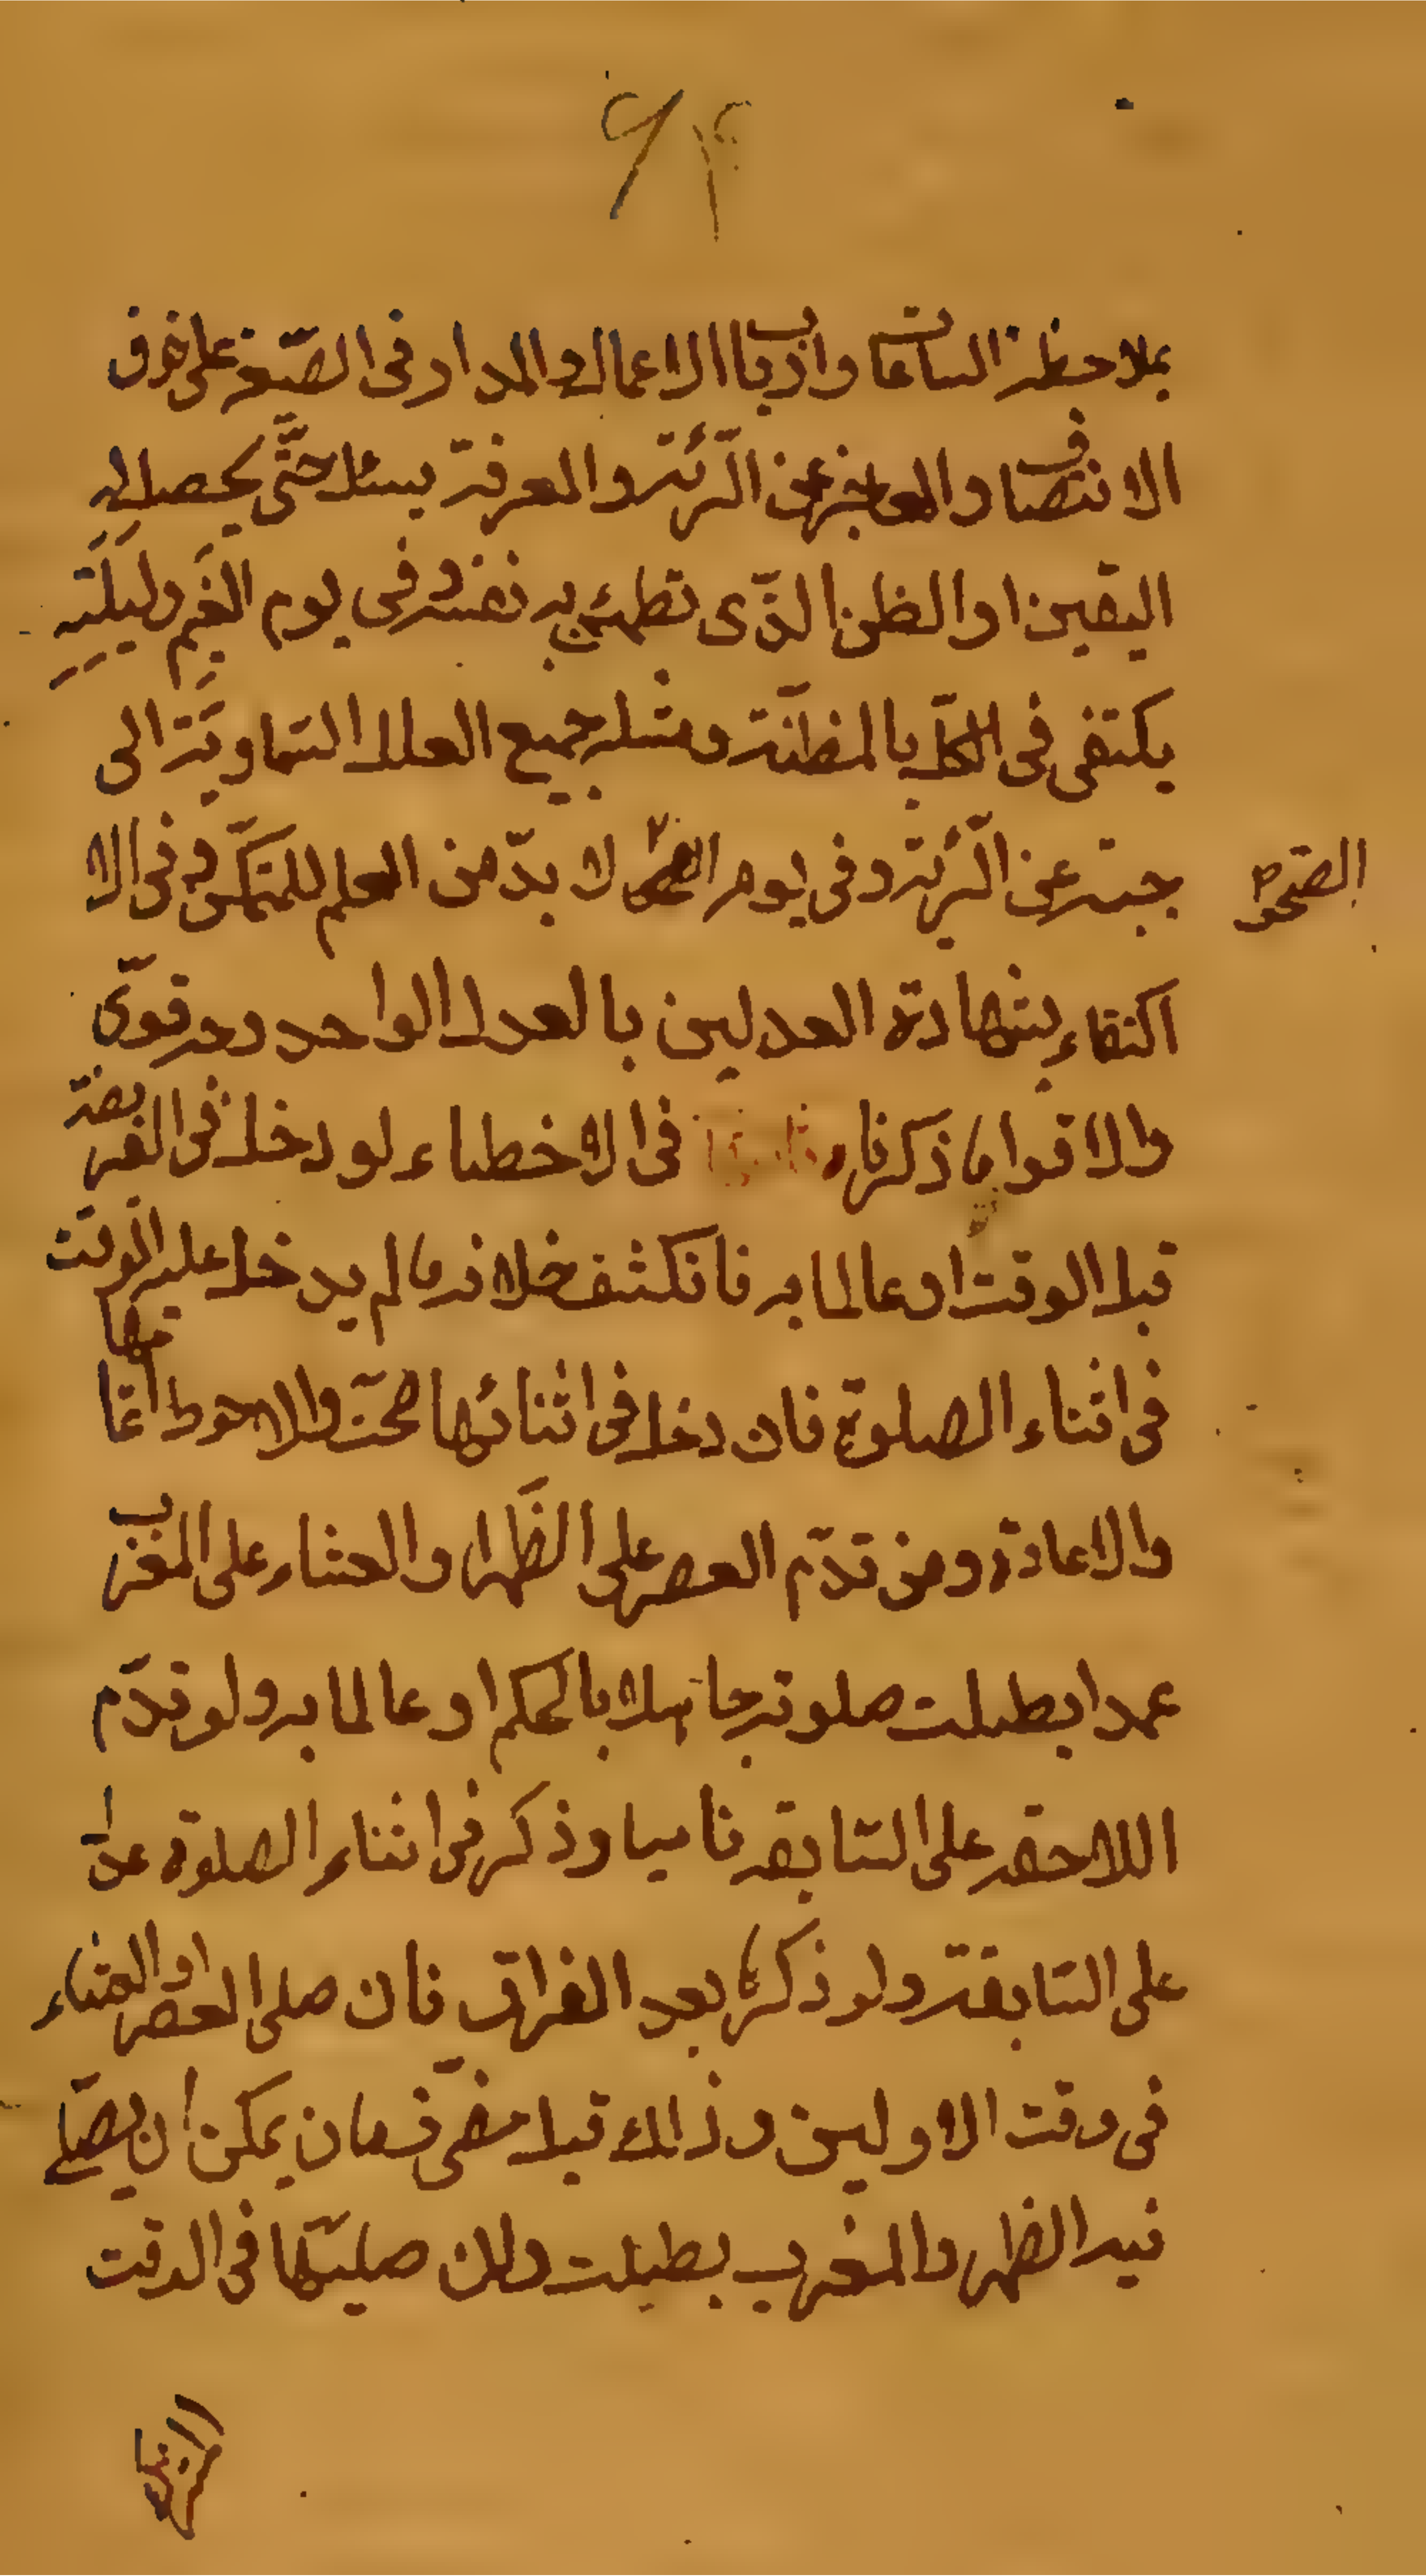 بملاحظة الساعات وارباب الاعمال والمدار فى الصّنعة على فوق
الانتصاف والعاجز عن الرّئية والمعرفة يسئل حتّى يحصل له
اليقين او الظن الذّى تطمئن به نفسه و فى يوم الغيم وليلته
يكتفى فى الكلّ بالمظنّة ومثله جميع العلل السّماويّة الى
جبة عن الرّئية و فى يوم الصحو لا بدّ من العلم للمتمكّن و فى الا
الصّحو
اكتفاء بشهادة العدلين بالعدل الواحد وجه قوىّ
والاقوا ما ذكرنا فى الاخطاء لو دخل فى الفريضة
قبل الوقت او عالما به فانكشف خلافه ما لم يدخل عليه الوقت
فى اثناء الصلوة فان دخل فى اثنائها صحّت والاحوط اتمامها
والاعادة ومن قدّم العصر على الظّهر والعشاء على المغرب
عمدا بطلت صلوته جاهلا بالحكم او عالما به ولو قدّم
اللاحقه على السّابقه ناسيا وذكر فى اثناء الصلوة عدل
على السّابقة ولو ذكرها بعد الفراق فان صلى العصر او العشاء
فى وقت الاولين وذلك قبل مضى زمان يمكن ان يصلّى
فيه الظهر والمغرب بطلت وان صليّها فى الوقت